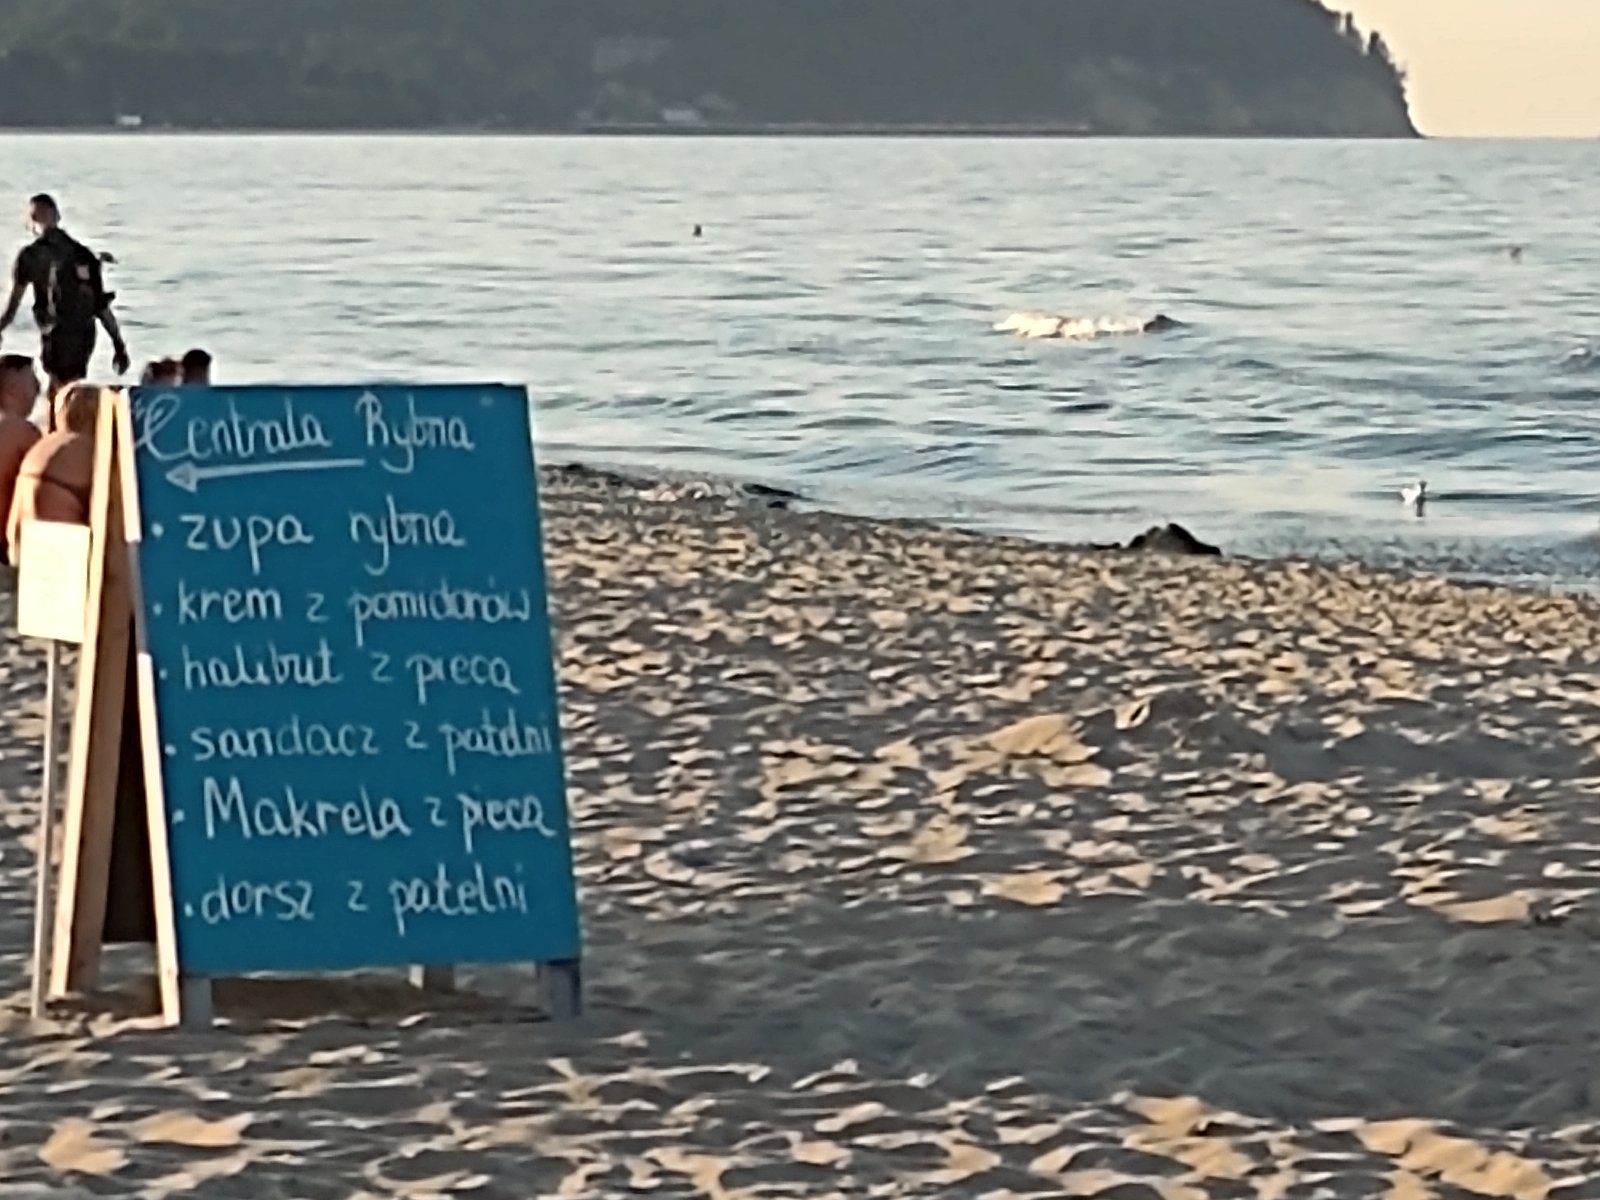 "Centrala Rybna"
• zupa rybna
• krem z pomidorów
• halibut z pieca
• sandacz z patelni
• Makrela z pieca
• dorsz z patelni